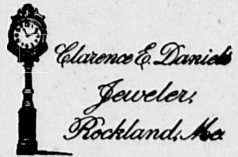 Clarence E. Daniels
Jeweler,
Rockland, Me.